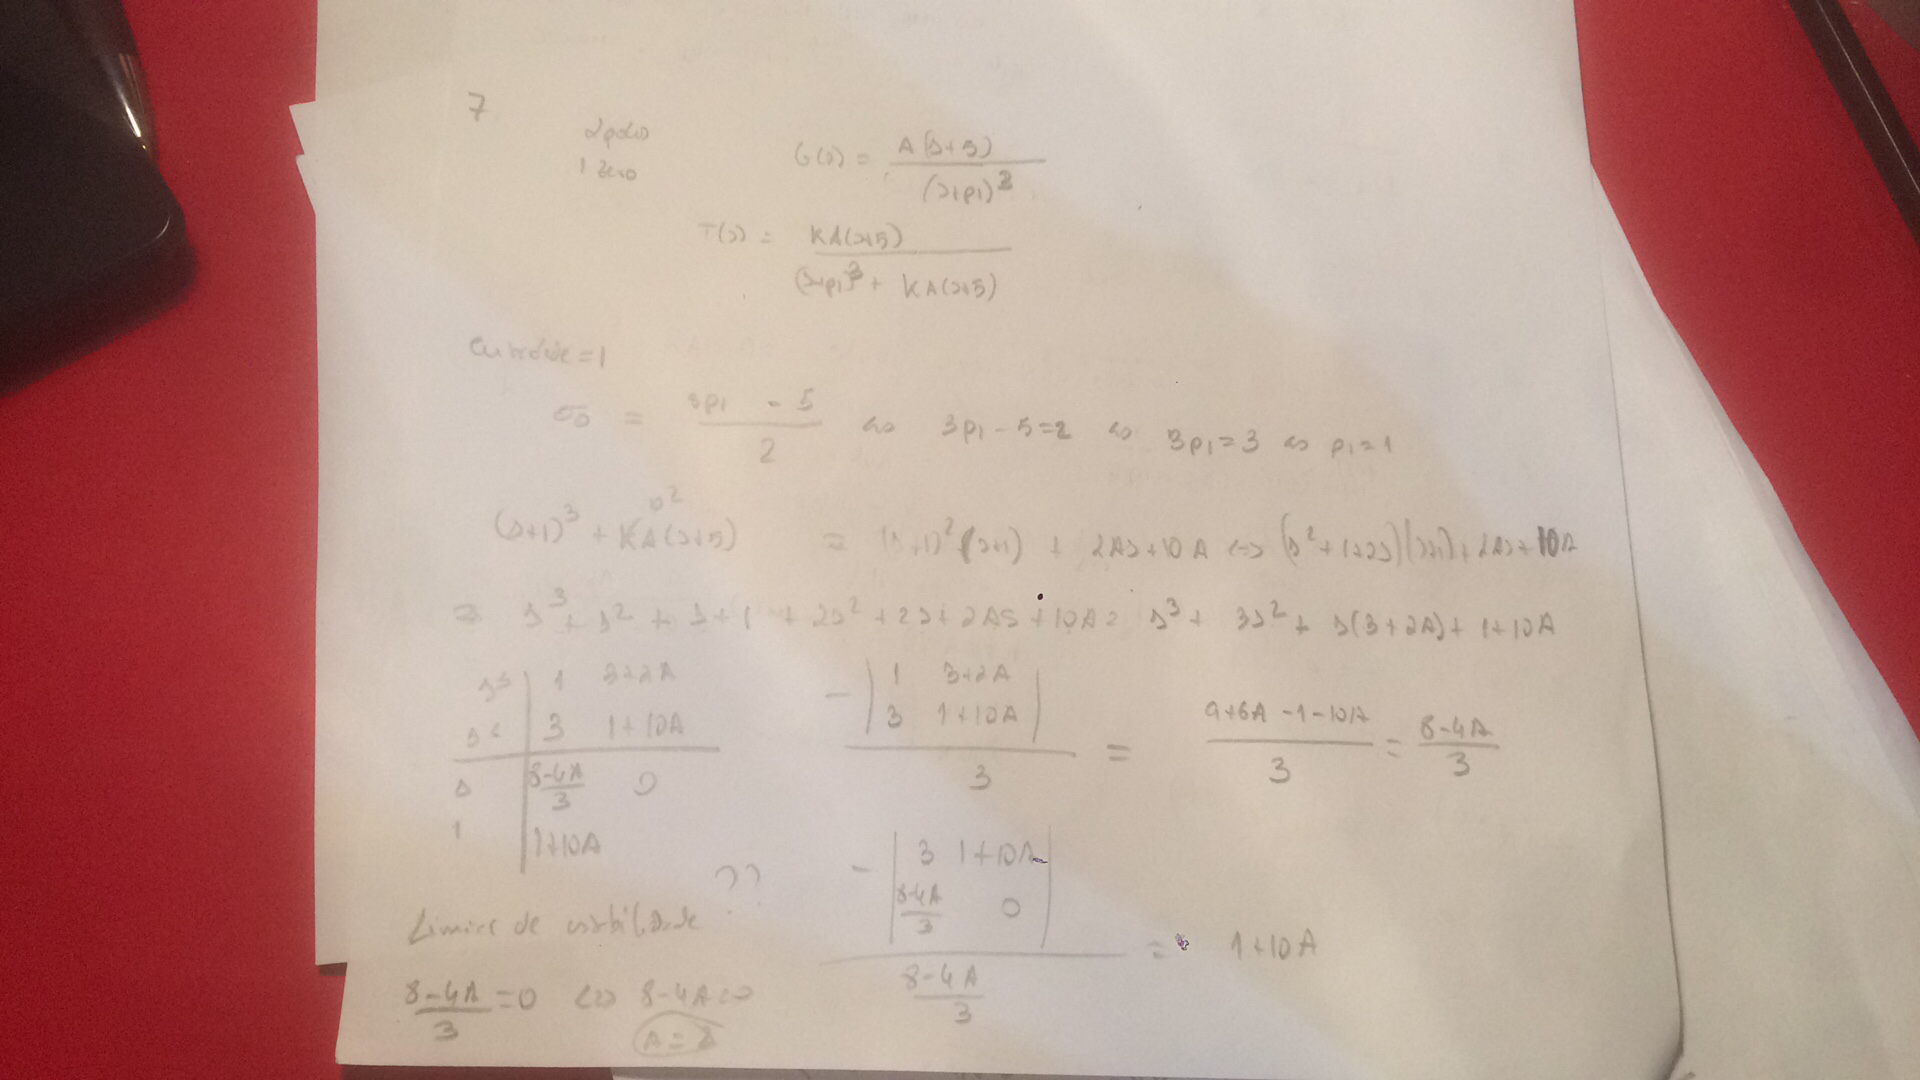 7
2 polos
1 zero
G(s) = A(s+5) / (s+p1)^3
T(s) = KA(s+5) / (s+p1)^3 + KA(s+5)
= 1
σ0 = 3p1 - 5 / 2 <=> 3p1 - 5 = 2 <=> 3p1 = 3 <=> p1 = 1
(s+1)^3 + KA(s+5) = (s+1)^2 (s+1) + 2As+10A <=> (s^2+1+2s)(s+1)+2As+10A
= s^3 + s^2 + s + 1 + 2s^2 + 2s + 2AS + 10A = s^3 + 3s^2 + s(3+2A) + 1+10A
s^3 | 1 3+2A
s^2 | 3 1+10A
s | 8-4A / 3 0
1 | 1+10A
- | 1 3+2A |
| 3 1+10A |
/ 3 = 9+6A-1-10A / 3 = 8-4A / 3
- | 3 1+10A |
| 8-4A / 3 0 |
/ 8-4A / 3 = 1+10A
Limite de estabilidade ??
8-4A / 3 = 0 <=> 8-4A =>
A = 2